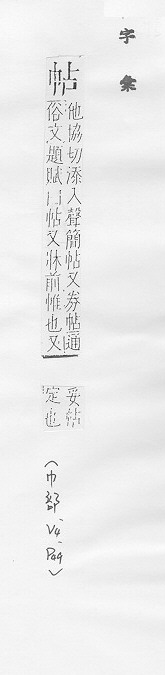 字彙
帖
他協切添入聲簡帖又券帖通
俗文題賦曰帖又牀前帷也又
妥帖
定也
(巾部、V4、P44)